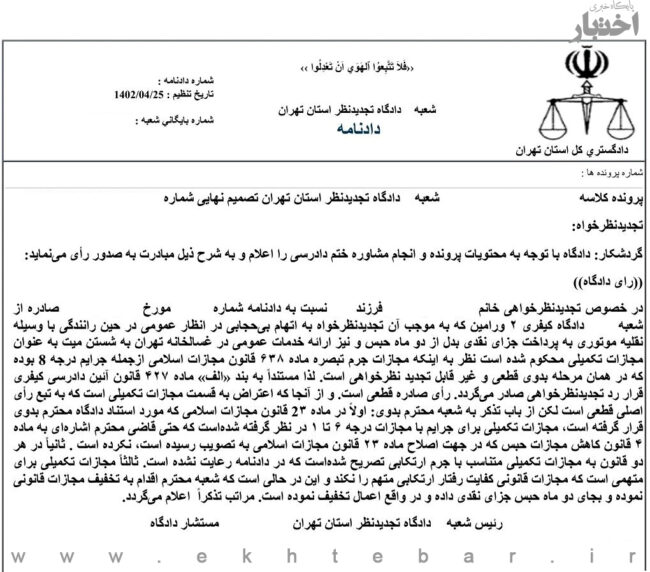 پایگاه خبری
اختبار
‹‹فَلاَ تَتَّبِعوُا اَلهَوَي اَنْ تَعْدِلُوا ››
شماره دادنامه :
تاریخ تنظیم : 1402/04/25
شعبه دادگاه تجدیدنظر استان تهران
شماره بایگاني شعبه :
دادنامه
دادگستري کل استان تهران
شماره پرونده ها :
پرونده کلاسه شعبه دادگاه تجدیدنظر استان تهران تصمیم نهایی شماره
تجدیدنظرخواه:
گردشکار: دادگاه با توجه به محتویات پرونده و انجام مشاوره ختم دادرسی را اعلام و به شرح ذیل مبادرت به صدور رأی می‌نماید:
((رای دادگاه))
در خصوص تجدیدنظرخواهی خانم فرزند نسبت به دادنامه شماره مورخ صادره از
شعبه دادگاه کیفری ۲ ورامین که به موجب آن تجدیدنظرخواه به اتهام بی‌حجابی در انظار عمومی در حین رانندگی با وسیله
نقلیه موتوری به پرداخت جزای نقدی بدل از دو ماه حبس و نیز ارائه خدمات عمومی در غسالخانه تهران به شستن میت به عنوان
مجازات تکمیلی محکوم شده است نظر به اینکه مجازات جرم تبصره ماده ۶۳۸ قانون مجازات اسلامی ازجمله جرایم درجه 8 بوده
که در همان مرحله بدوی قطعی و غیر قابل تجدید نظرخواهی است. لذا مستنداً به بند «الف» ماده ۴۲۷ قانون آئین دادرسی کیفری
قرار رد تجدیدنظرخواهی صادر می‌گردد. رأی صادره قطعی است. و از آنجا که اعتراض به قسمت مجازات تکمیلی است که به تبع رأی
اصلی قطعی است لکن از باب تذکر به شعبه محترم بدوی: اولاً در ماده 23 قانون مجازات اسلامی که مورد استناد دادگاه محترم بدوی
قرار گرفته است، مجازات تکمیلی برای جرایم با مجازات درجه ۶ تا ۱ در نظر گرفته شده‌است که حتی قاضی محترم اشاره‌ای به ماده
۴ قانون کاهش مجازات حبس که در جهت اصلاح ماده ۲۳ قانون مجازات اسلامی به تصویب رسیده است، نکرده است . ثانیاً در هر
دو قانون به مجازات تکمیلی متناسب با جرم ارتکابی تصریح شده‌است که در دادنامه رعایت نشده است. ثالثاً مجازات تکمیلی برای
متهمی است که مجازات قانونی کفایت رفتار ارتکابی متهم را نکند و این در حالی است که شعبه محترم اقدام به تخفیف مجازات قانونی
نموده و بجای دو ماه حبس جزای نقدی داده و در واقع اعمال تخفیف نموده است. مراتب تذکراً اعلام می‌گردد.
رئیس شعبه دادگاه تجدیدنظر استان تهران مستشار دادگاه
www.ekhtebar.ir